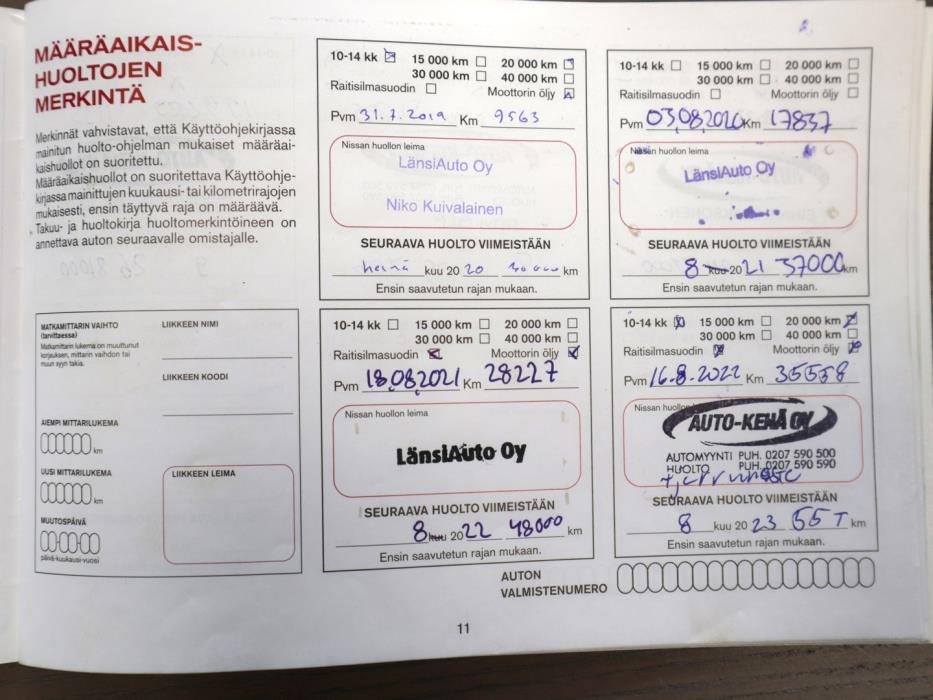 MÄÄRÄAIKAIS-
HUOLTOJEN
MERKINTÄ
Merkinnät vahvistavat, että Käyttöohjekirjassa
mainitun huolto-ohjelman mukaiset määräai-
kaishuollot on suoritettu.
Määräaikaishuollot on suoritettava Käyttöohje-
kirjassa mainittujen kuukausi- tai kilometrirajojen
mukaisesti, ensin täyttyvä raja on määräävä.
Takuu- ja huoltokirja huoltomerkintöineen on
annettava auton seuraavalle omistajalle.
10-14 kk 15 000 km 20 000 km
30 000 km 40 000 km
Raitisilmasuodin Moottorin öljy
Pvm 31.7.2019 Km 9563
Nissan huollon leima
LänsiAuto Oy
Niko Kuivalainen
SEURAAVA HUOLTO VIIMEISTÄÄN
heinä kuu 20 20 km
Ensin saavutetun rajan mukaan.
10-14 kk 15 000 km 20 000 km
30 000 km 40 000 km
Raitisilmasuodin Moottorin öljy
Pvm 03,08,2020 Km 17837
Nissan huollon leima
LänsiAuto Oy
SEURAAVA HUOLTO VIIMEISTÄÄN
8 kuu 20 21 37000 km
Ensin saavutetun rajan mukaan.
MATKAMITTARIN VAIHTO
(tarvittaessa)
Matkamittarin lukema on muuttunut
korjauksen, mittarin vaihdon tai
muun syyn takia.
LIIKKEEN NIMI
LIIKKEEN KOODI
AIEMPI MITTARILUKEMA
km
UUSI MITTARILUKEMA
km
MUUTOSPÄIVÄ
päivä-kuukausi-vuosi
LIIKKEEN LEIMA
10-14 kk 15 000 km 20 000 km
30 000 km 40 000 km
Raitisilmasuodin Moottorin öljy
Pvm 18.08.2021 Km 28227
Nissan huollon leima
LänsiAuto Oy
SEURAAVA HUOLTO VIIMEISTÄÄN
8 kuu 20 22 48000 km
Ensin saavutetun rajan mukaan.
10-14 kk 15 000 km 20 000 km
30 000 km 40 000 km
Raitisilmasuodin Moottorin öljy
Pvm 16.8.2022 Km 35558
Nissan huollon
AUTO-KEHÄ OY
AUTOMYYNTI PUH. 0207 590 500
HUOLTO PUH. 0207 590 590
SEURAAVA HUOLTO VIIMEISTÄÄN
8 kuu 20 23 55 T km
Ensin saavutetun rajan mukaan.
AUTON
VALMISTENUMERO
11